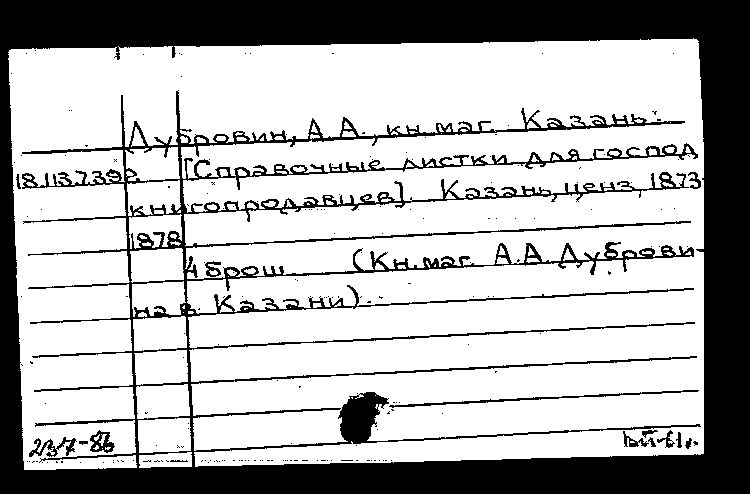 Дубровин, А.А., кн. маг. Казань:
18.113.7.392 [Справочные листки для господ
книгопродавцев]. Казань, ценз. 1873-
1878.
4 брош. (Кн. маг. А.А. Дуброви-
на в Казани).
237-86